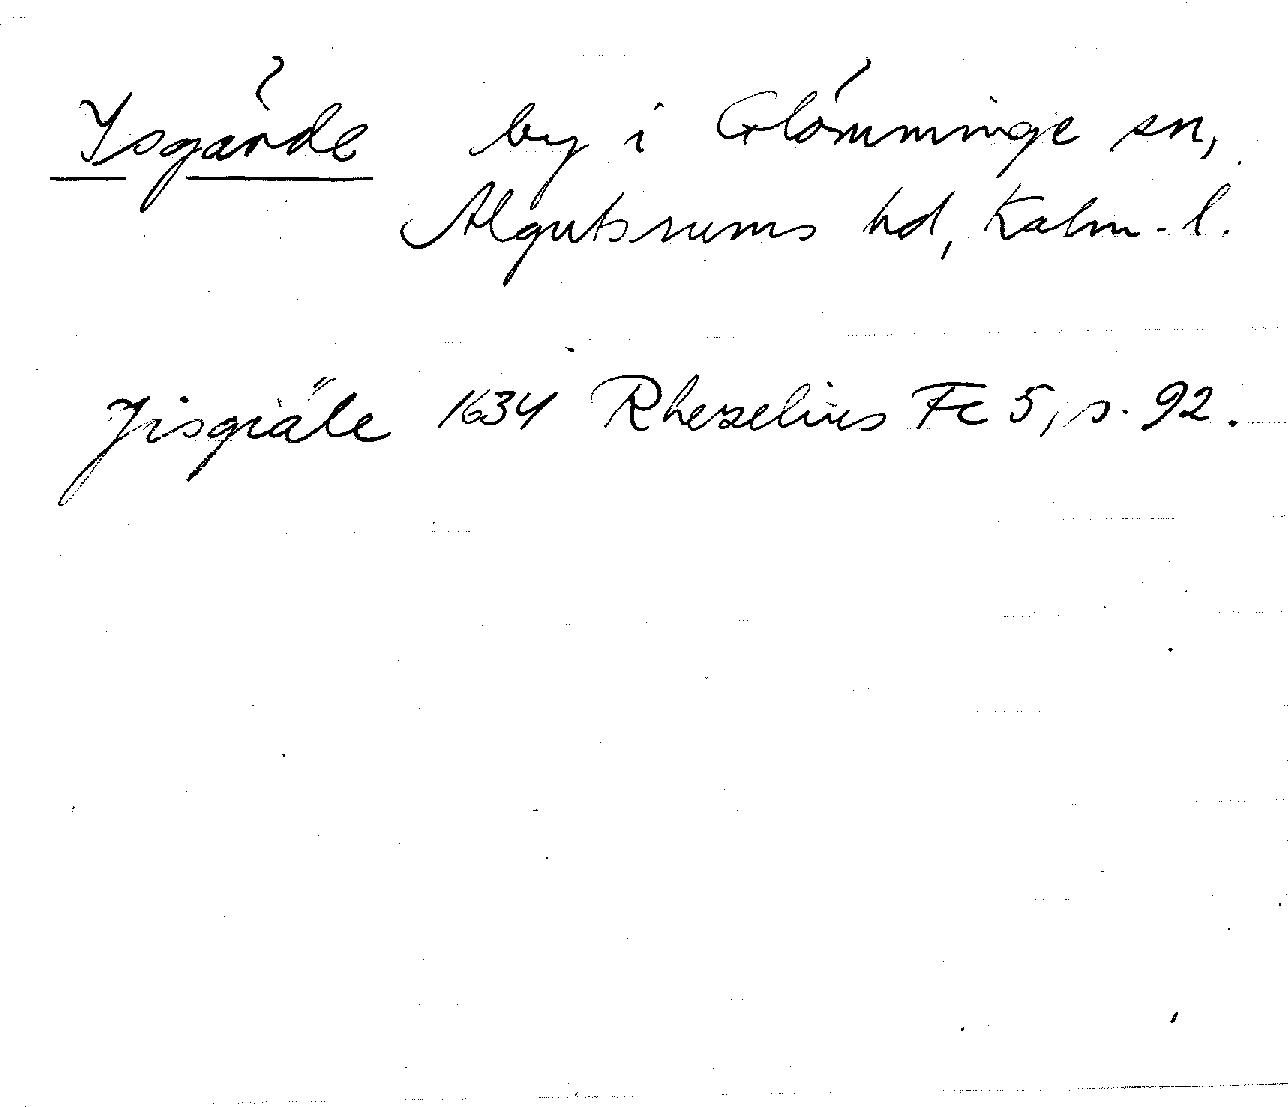 Isgärde by i Glömminge sn,
Algutsrums hd, Kalm. l.
Jisgiäle 1634 Rhezelius Fc 5, s. 92.